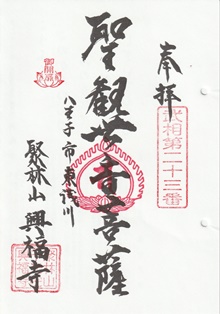 奉拝
武相第二十三番
聖観世音菩薩
御開扉
八王子市東浅川
聚林山 興福寺